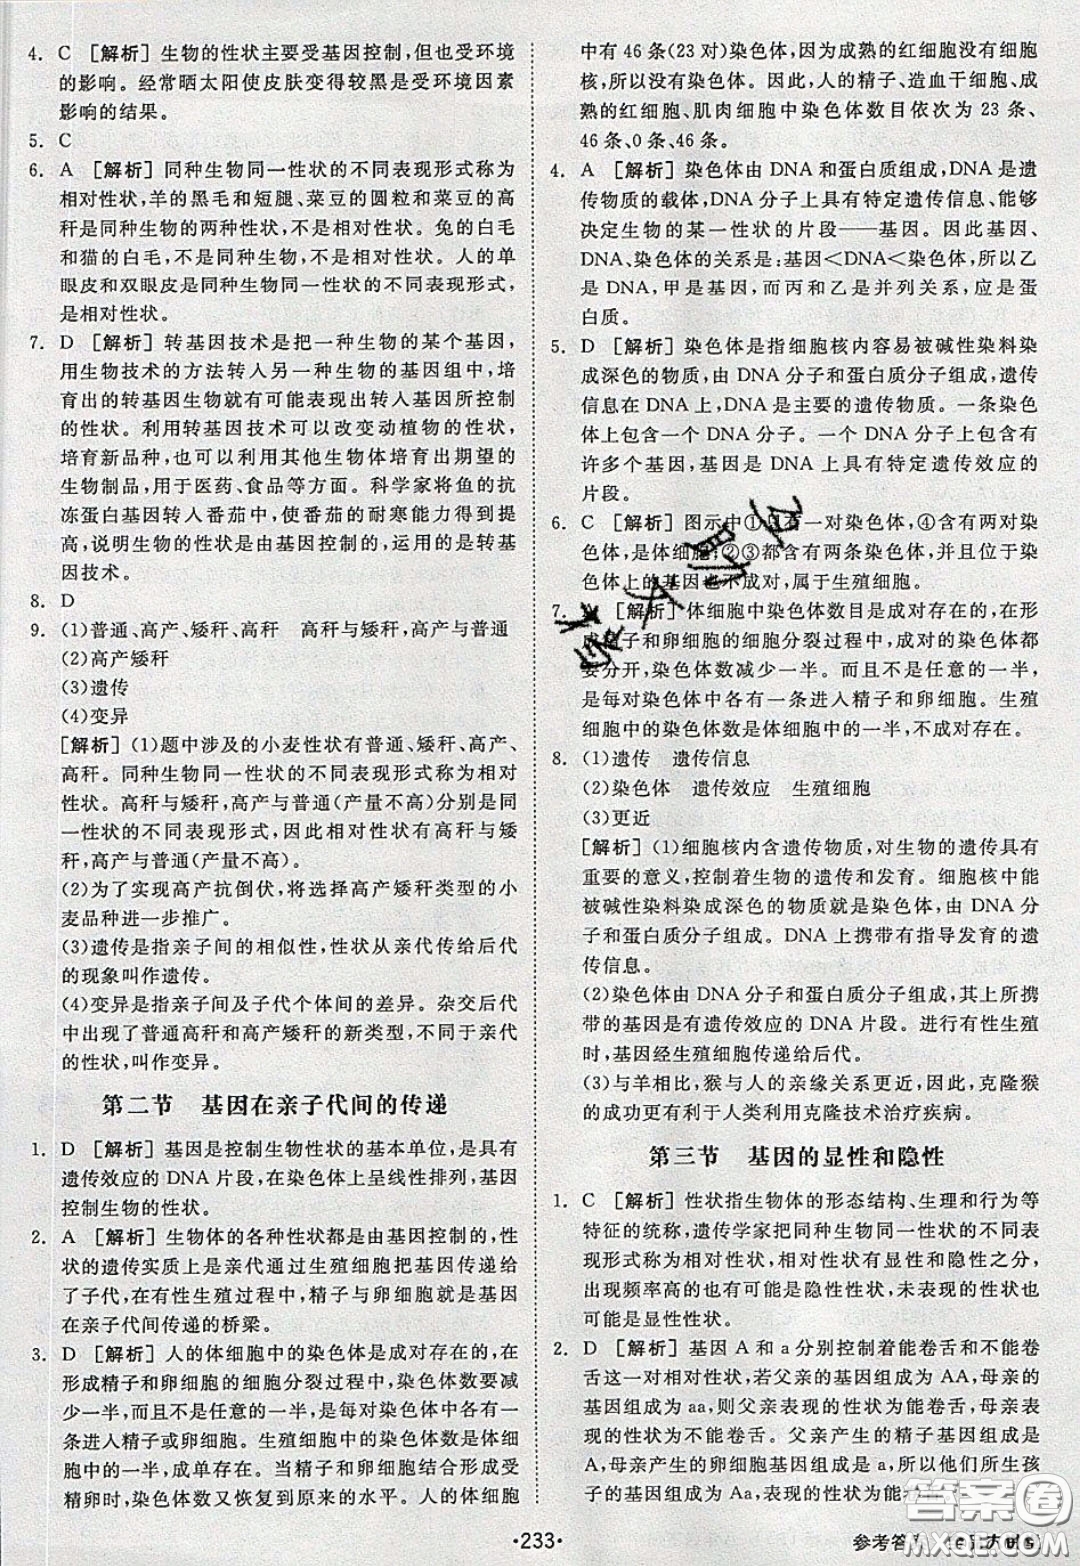 4. C [解析]生物的性状主要受基因控制,但也受环境
的影响。经常晒太阳使皮肤变得较黑是受环境因素
影响的结果。
5. C
6. A [解析]同种生物同一性状的不同表现形式称为
相对性状,羊的黑毛和短腿、菜豆的圆粒和菜豆的高
秆是同种生物的两种性状,不是相对性状。兔的白毛
和猫的白毛,不是同种生物,不是相对性状。人的单
眼皮和双眼皮是同种生物同一性状的不同表现形式,
是相对性状。
7. D [解析]转基因技术是把一种生物的某个基因,
用生物技术的方法转入另一种生物的基因组中,培
育出的转基因生物就有可能表现出转入基因所控制
的性状。利用转基因技术可以改变动植物的性状,
培育新品种,也可以利用其他生物体培育出期望的
生物制品,用于医药、食品等方面。科学家将鱼的抗
冻蛋白基因转入番茄中,使番茄的耐寒能力得到提
高,说明生物的性状是由基因控制的,运用的是转基
因技术。
8. D
9. (1)普通、高产、矮秆、高秆 高秆与矮秆,高产与普通
(2)高产矮秆
(3)遗传
(4)变异
[解析](1)题中涉及的小麦性状有普通、矮秆、高产、
高秆。同种生物同一性状的不同表现形式称为相对
性状。高秆与矮秆,高产与普通(产量不高)分别是同
一性状的不同表现形式,因此相对性状有高秆与矮
秆,高产与普通(产量不高)。
(2)为了实现高产抗倒伏,将选择高产矮秆类型的小
麦品种进一步推广。
(3)遗传是指亲子间的相似性,性状从亲代传给后代
的现象叫作遗传。
(4)变异是指亲子间及子代个体间的差异。杂交后代
中出现了普通高秆和高产矮秆的新类型,不同于亲代
的性状,叫作变异。
第二节 基因在亲子代间的传递
1. D [解析]基因是控制生物性状的基本单位,是具有
遗传效应的DNA片段,在染色体上呈线性排列,基因
控制生物的性状。
2. A [解析]生物体的各种性状都是由基因控制的,性
状的遗传实质上是亲代通过生殖细胞把基因传递给
了子代,在有性生殖过程中,精子与卵细胞就是基因
在亲子代间传递的桥梁。
3. D [解析]人的体细胞中的染色体是成对存在,在
形成精子和卵细胞的细胞分裂过程中,染色体数要减
少一半,而且不是任意的一半,是每对染色体中各有一
条进入精子或卵细胞。生殖细胞中的染色体数是体细
胞中的一半,成单存在。当精子和卵细胞结合形成受
精卵时,染色体数又恢复到原来的水平。人的体细胞
中有46条(23对)染色体,因为成熟的红细胞没有细胞
核,所以没有染色体。因此,人的精子、造血干细胞、成
熟的红细胞、肌肉细胞中染色体数目依次为23条、
46条、0条、46条。
4. A [解析]染色体由DNA和蛋白质组成,DNA是
遗传物质的载体,DNA分子上具有特定遗传信息、能够
决定生物的某一性状的片段——基因。因此基因、
DNA、染色体的关系是:基因<DNA<染色体,所以乙
是DNA,甲是基因,而丙和乙是并列关系,应是蛋
白质。
5. D [解析]染色体是指细胞核内容易被碱性染料染
成深色的物质,由DNA分子和蛋白质分子组成,遗传
信息在DNA上,DNA是主要的遗传物质。一条染色
体上包含一个DNA分子。一个DNA分子上包含有
许多个基因,基因是DNA上具有特定遗传效应的
片段。
6. C [解析]图示中①只有一对染色体,④含有两对染
色体,是体细胞;②③都含有两条染色体,并且位于染
色体上的基因也不成对,属于生殖细胞。
7. [解析]体细胞中染色体数目是成对存在的,在形
成精子和卵细胞的细胞分裂过程中,成对的染色体都
要分开,染色体数减少一半。而且不是任意的一半,
是每对染色体中各有一条进入精子和卵细胞。生殖
细胞中的染色体数是体细胞中的一半,不成对存在。
8. (1)遗传 遗传信息
(2)染色体 遗传效应 生殖细胞
(3)更近
[解析](1)细胞核内含遗传物质,对生物的遗传具有
重要的意义,控制着生物的遗传和发育。细胞核中能
被碱性染料染成深色的物质就是染色体,由DNA分
子和蛋白质分子组成。DNA上携带有指导发育的遗
传信息。
(2)染色体由DNA分子和蛋白质分子组成,其上所携
带的基因是有遗传效应的DNA片段。进行有性生殖
时,基因经生殖细胞传递给后代。
(3)与羊相比,猴与人的亲缘关系更近,因此,克隆猴
的成功更有利于人类利用克隆技术治疗疾病。
第三节 基因的显性和隐性
1. C [解析]性状指生物体的形态结构、生理和行为等
特征的统称,遗传学家把同种生物同一性状的不同表
现形式称为相对性状,相对性状有显性和隐性之分,
出现频率高的也可能是隐性性状,未表现的性状也
可能是显性性状。
2. D [解析]基因A和a分别控制着能卷舌和不能卷
舌这一对相对性状,若父亲的基因组成为AA,母亲的
基因组成为aa,则父亲表现的性状为能卷舌,母亲表
现的性状为不能卷舌。父亲产生的精子基因组成是
A,母亲产生的卵细胞基因组成是a,所以他们所生孩
子的基因组成为Aa,表现的性状为能卷舌。
·233·
参考答案
答案圈
MXQE.COM